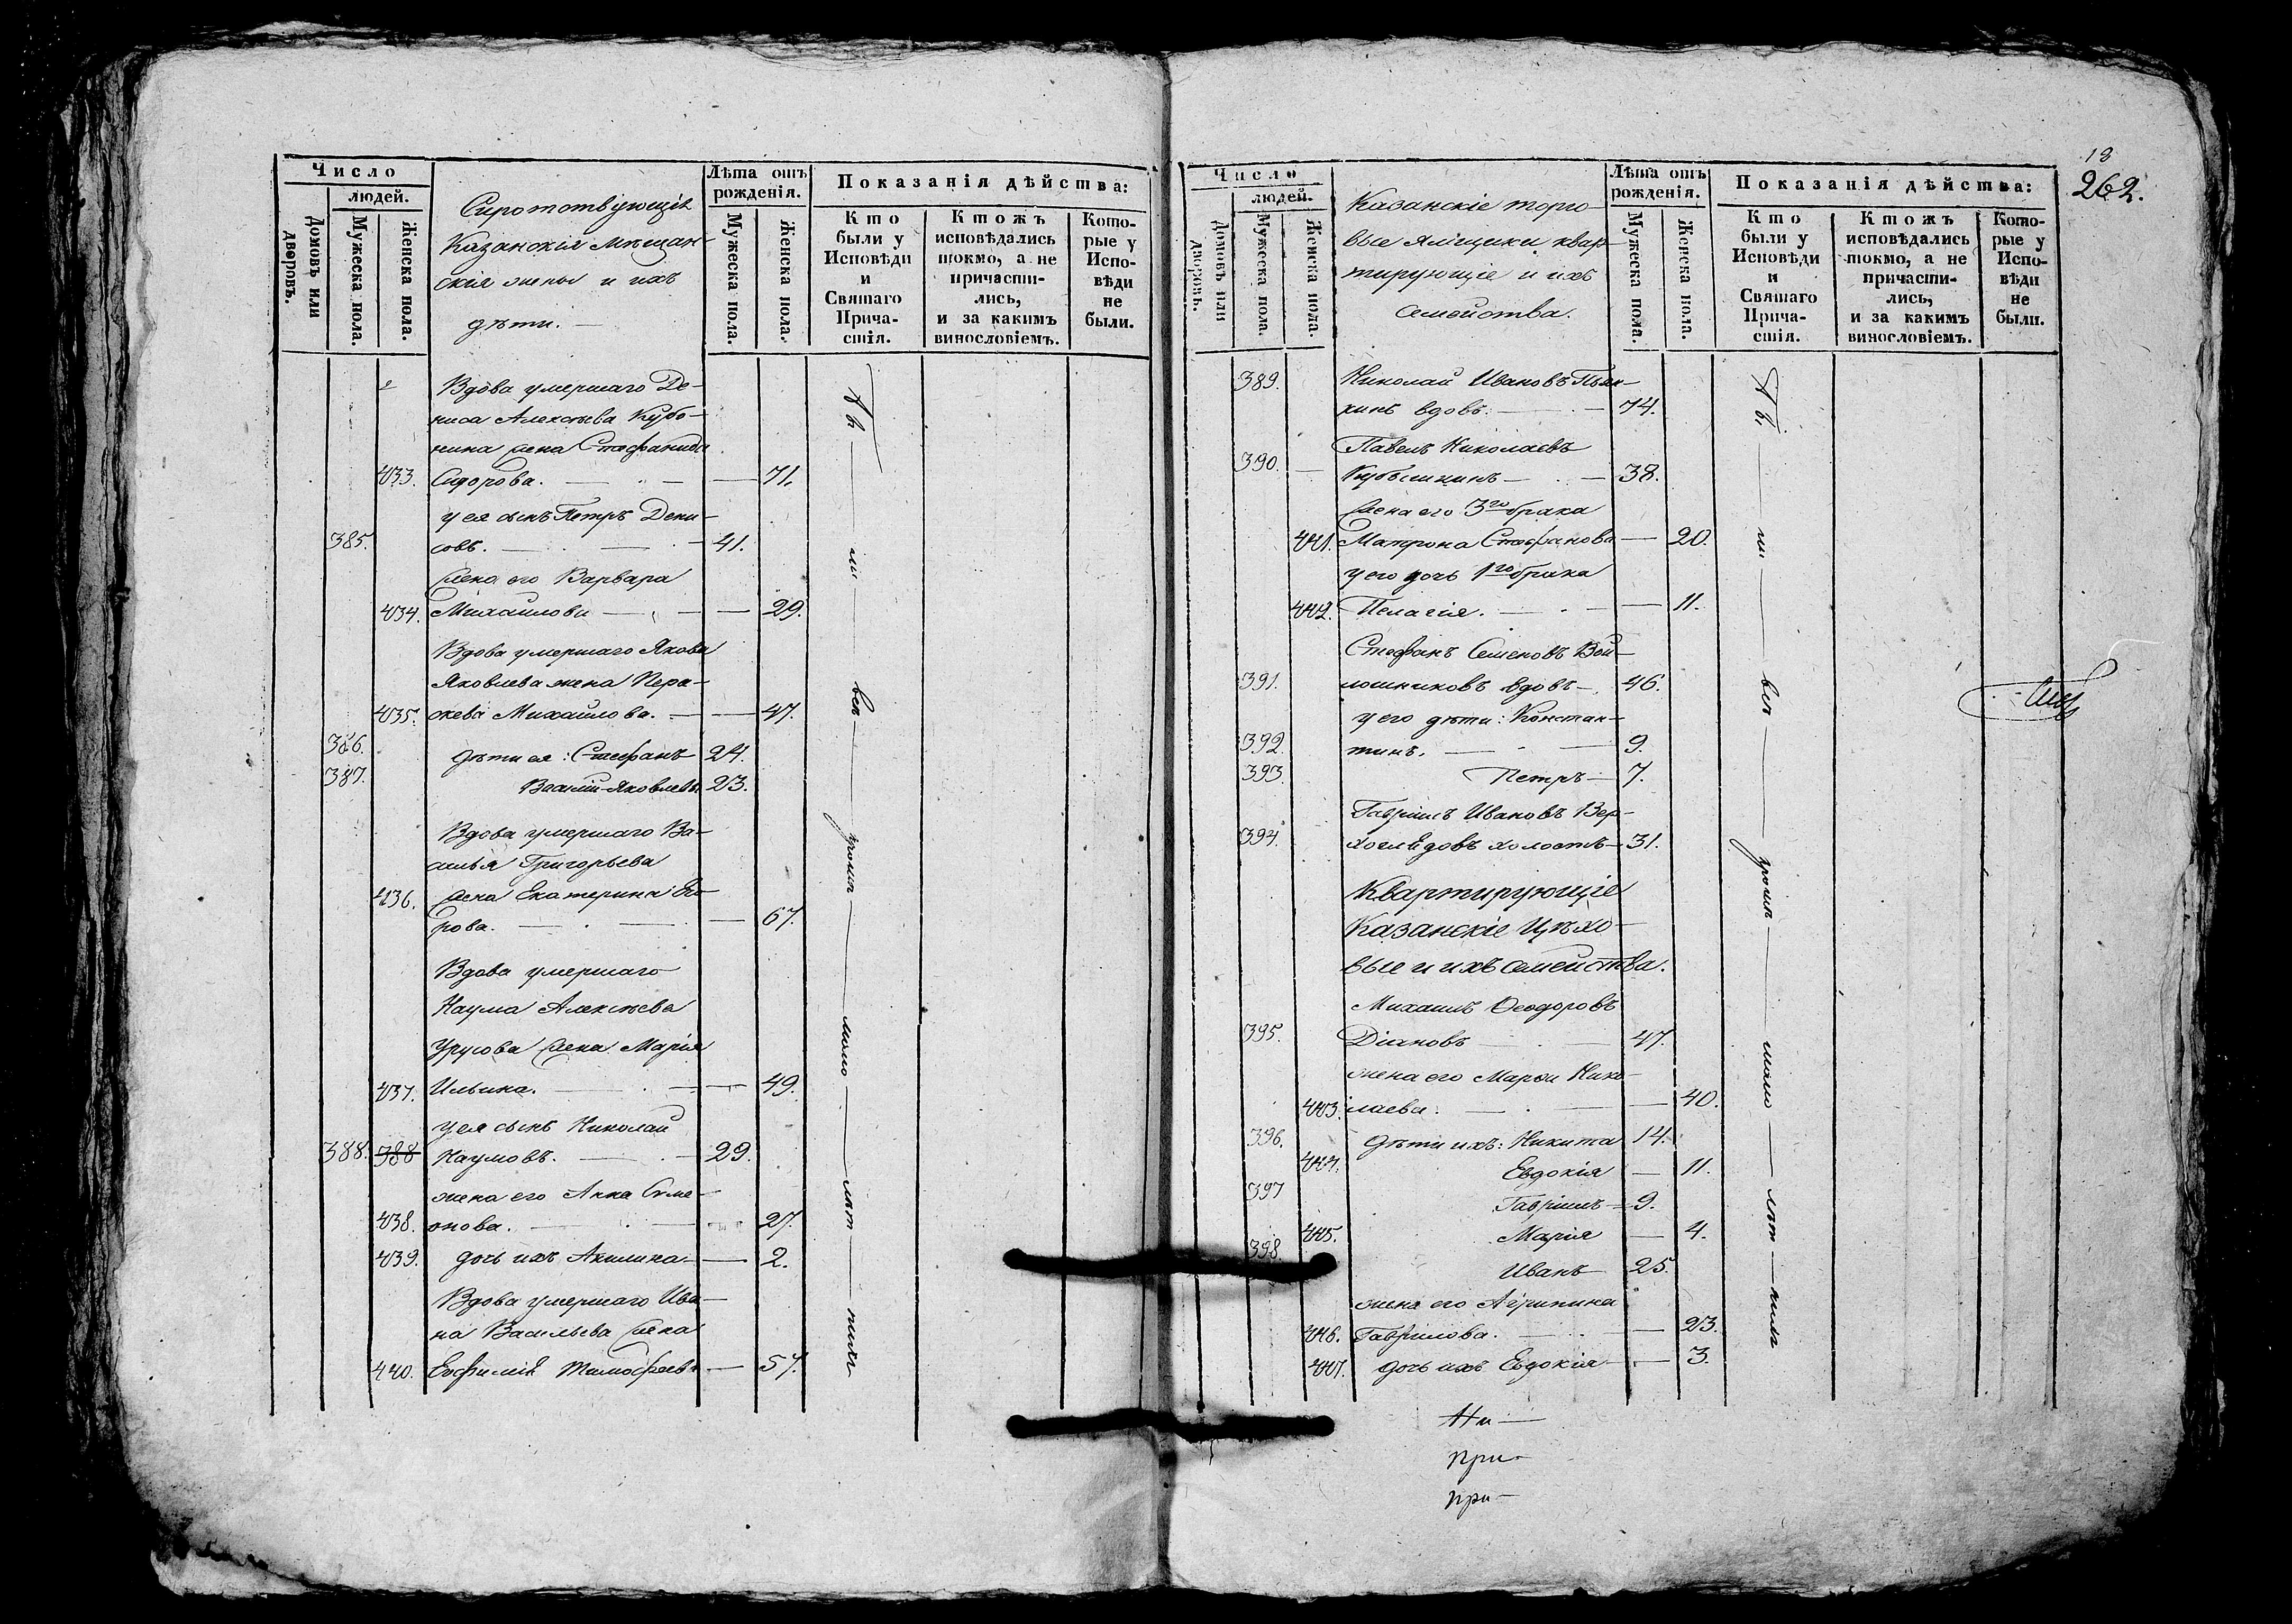 Число
людей.
Домовъ или дворовъ.
Мужеска пола.
Женска пола.
Сиротствующія
Казанскія мѣщан-
скія жены и ихъ
дѣти. —
Лѣта отъ
рожденія.
Мужеска пола.
Женска пола.
Показанія дѣйства:
Кто
были у
Исповѣди
и
Святаго
Прича-
стія.
Ктожъ
исповѣдались
токмо, а не
причасти-
лись,
и за какимъ
винословіемъ.
Кото-
рые у
Испо-
вѣди
не
были.
Вдова умершаго Де-
ниса Алексѣева Кубо-
нина жена Стефанида
433. Сидорова. — — 71.
у ея сынъ Петръ Дени-
385. совъ. — 41.
Жена его Варвара
434. Михайлова — — 29.
Вдова умершаго Якова
Яковлева жена Пера-
435. скева Михайлова. — — 47.
386. дѣти ея: Стефанъ 24.
387. Василій Яковлевы 23.
Вдова умершаго Ва-
силья Григорьева
436. жена Екатерина Его-
рова. — — 67.
Вдова умершаго
Наума Алексѣева
Урусова жена Марія
437. Ильина. — — 49.
у ея сынъ Николай
388. 388 Наумовъ. — 29.
жена его Анна Симе-
438. онова. — 27.
439. дочь ихъ Акилина — 2.
Вдова умершаго Ива-
на Васильева жена
440. Евфимія Тимофеева — 57.
18
262.
Число
людей.
Домовъ или дворовъ.
Мужеска пола.
Женска пола.
Казанскіе торго-
вые ямщики квар-
тирующіе и ихъ
семейства.
Лѣта отъ
рожденія.
Мужеска пола.
Женска пола.
Показанія дѣйства:
Кто
были у
Исповѣди
и
Святаго
Прича-
стія.
Ктожъ
исповѣдались
токмо, а не
причасти-
лись,
и за какимъ
винословіемъ.
Кото-
рые у
Испо-
вѣди
не
были.
389. Николай Ивановъ
вдовъ. — 74.
Павелъ Николаевъ
390. Кубышкинъ — 38.
Жена его 3го брака
441. Матрона Стефанова — 20.
у его дочь 1го брака
442. Пелагія. — — 11.
Стефанъ Семеновъ Вой-
391. лошниковъ вдовъ — 46.
у его дѣти: Констан-
392. тинъ. — 9.
393. Петръ — 7.
Гавріилъ Ивановъ Вер-
394. хоглядовъ холостъ — 31.
Квартирующіе
Казанскіе Цѣхо-
вые и ихъ семейства.
Михаилъ Ѳеодоровъ
395. Діановъ — 47.
жена его Марѳа Нико-
443. лаева. — — 40.
396. Дѣти ихъ: Никита 14.
444. Евдокія — 11.
397 Гавріилъ — 9.
445. Марія — 4.
398 Иванъ 25.
жена его Агрипина
446. Гаврилова. — — 23.
447. дочь ихъ Евдокія — 3.
при-
при-